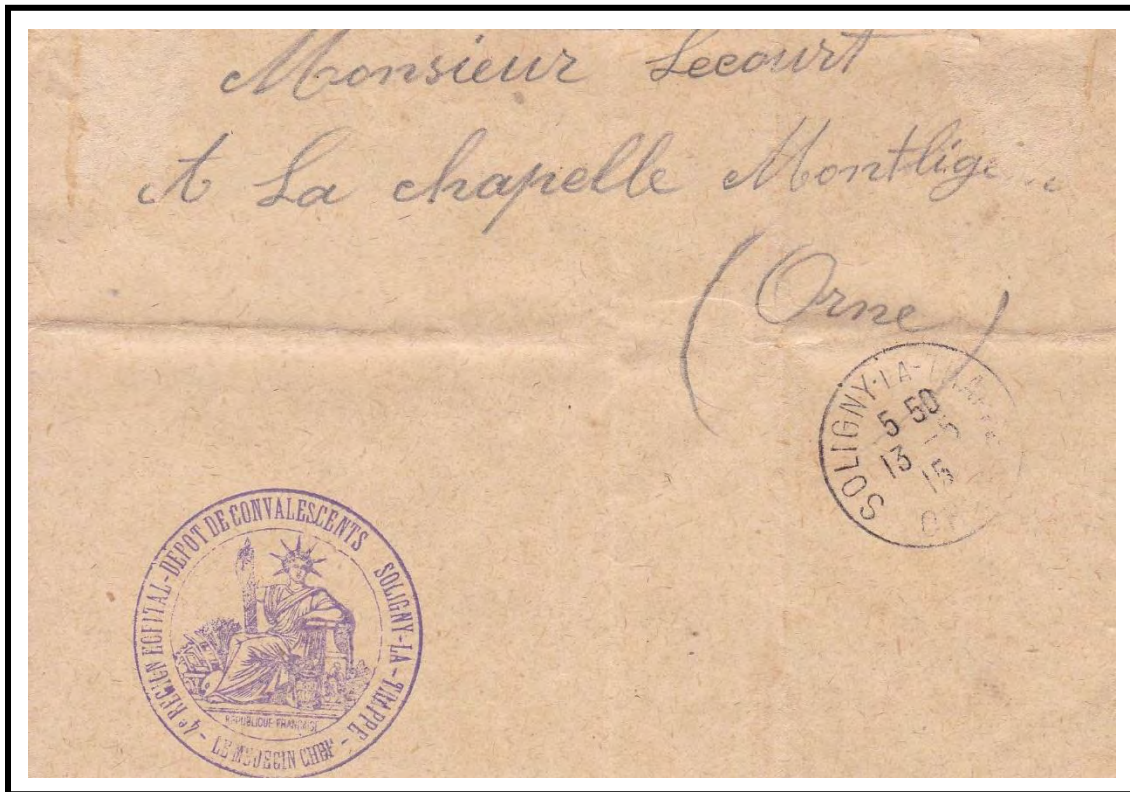 Monsieur Lecourt
A La chapelle Montlige
(Orne)
SOLIGNY-LA-TRAPPE
5 50
13 -5
15
4e REGION HOPITAL-DEPOT DE CONVALESCENTS SOLIGNY-LA-TRAPPE
- LE MEDECIN CHEF -
REPUBLIQUE FRANCAISE